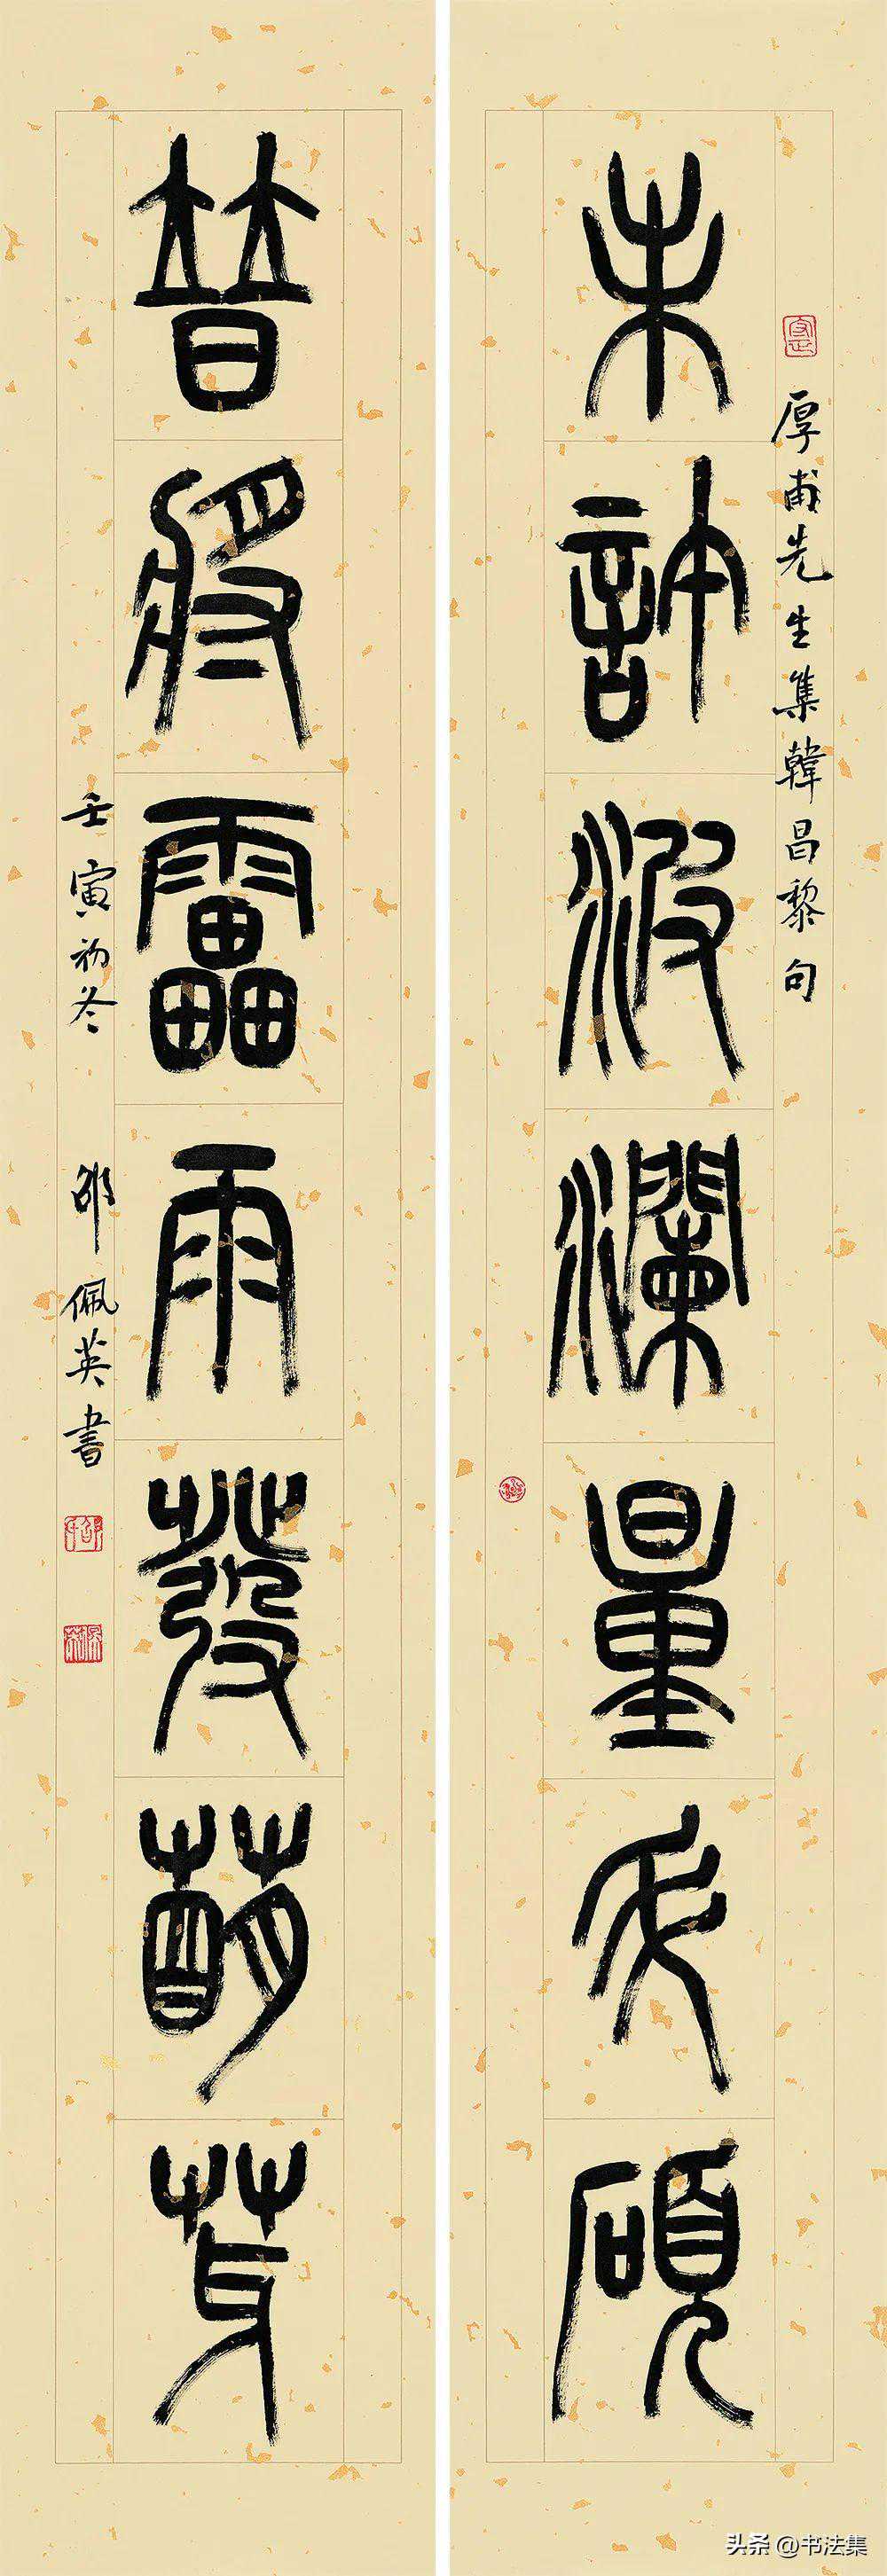 厚甫先生集韓昌黎句
未許波瀾量斗碩
普將靁雨發萌芽
壬寅初冬 邵佩英書
头条 @书法集